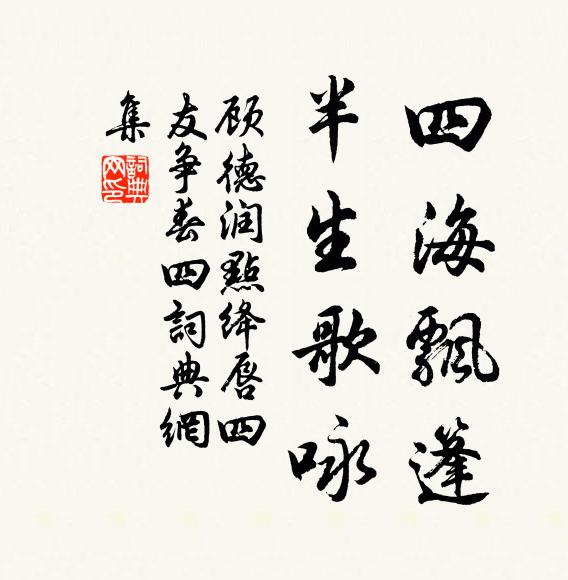 四海飄蓬
半生歌咏
顾德润點绛唇四
友争春四詞典網
集
詞典
网印